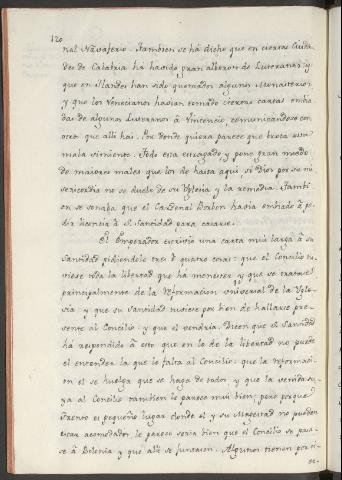 120
nal Navajerio. Tambien se há dicho que en ciertas Ciuda-
des de Calabria há havido gran alboroto de Luteranos: y
que en Flandes han sido quemados algunos Monasterios;
y que los Venecianos havian tomado ciertas cartas embia-
das de algunos Luteranos à Vincencio, comunicandose con
otros que alli hai. Por donde quiera parece que brota esta
mala simiente. Todo esta estragado, y pone gran miedo
de maiores males que los de hasta aqui, si Dios por su mi-
sericordia no se duele de su Yglesia y la remedia. Tambi-
en se sonaba que el Cardenal Borbon havia embiado à pe-
dir licencia à S. Santidad para casarse.
El Emperador escrivio una carta mui larga à su
Santidad pidiendole tres ò quatro cosas: que el Concilio tu-
viese toda la libertad que há menester, y que se tratase
principalmente de la Reformacion universal de la Ygle-
sia y que su Santidad tuviese por bien de hallarse pre-
sente al Concilio y que el vendria. Dicen que el Santidad
há respondido à esto que en lo de la libertad no puede
el entender la que le falta al Concilio: que la Reformaci-
on el se huelga que se haga de todo, y que la venida su-
ya al Concilio tambien le parece mui bien; pero porque
Trento es pequeño lugar donde el y su Magestad no pueden
estar acomodados le parece seria bien que el Concilio se pasa-
se à Bolonia y que alli se juntasen. Algunos tienen por ci-
er-